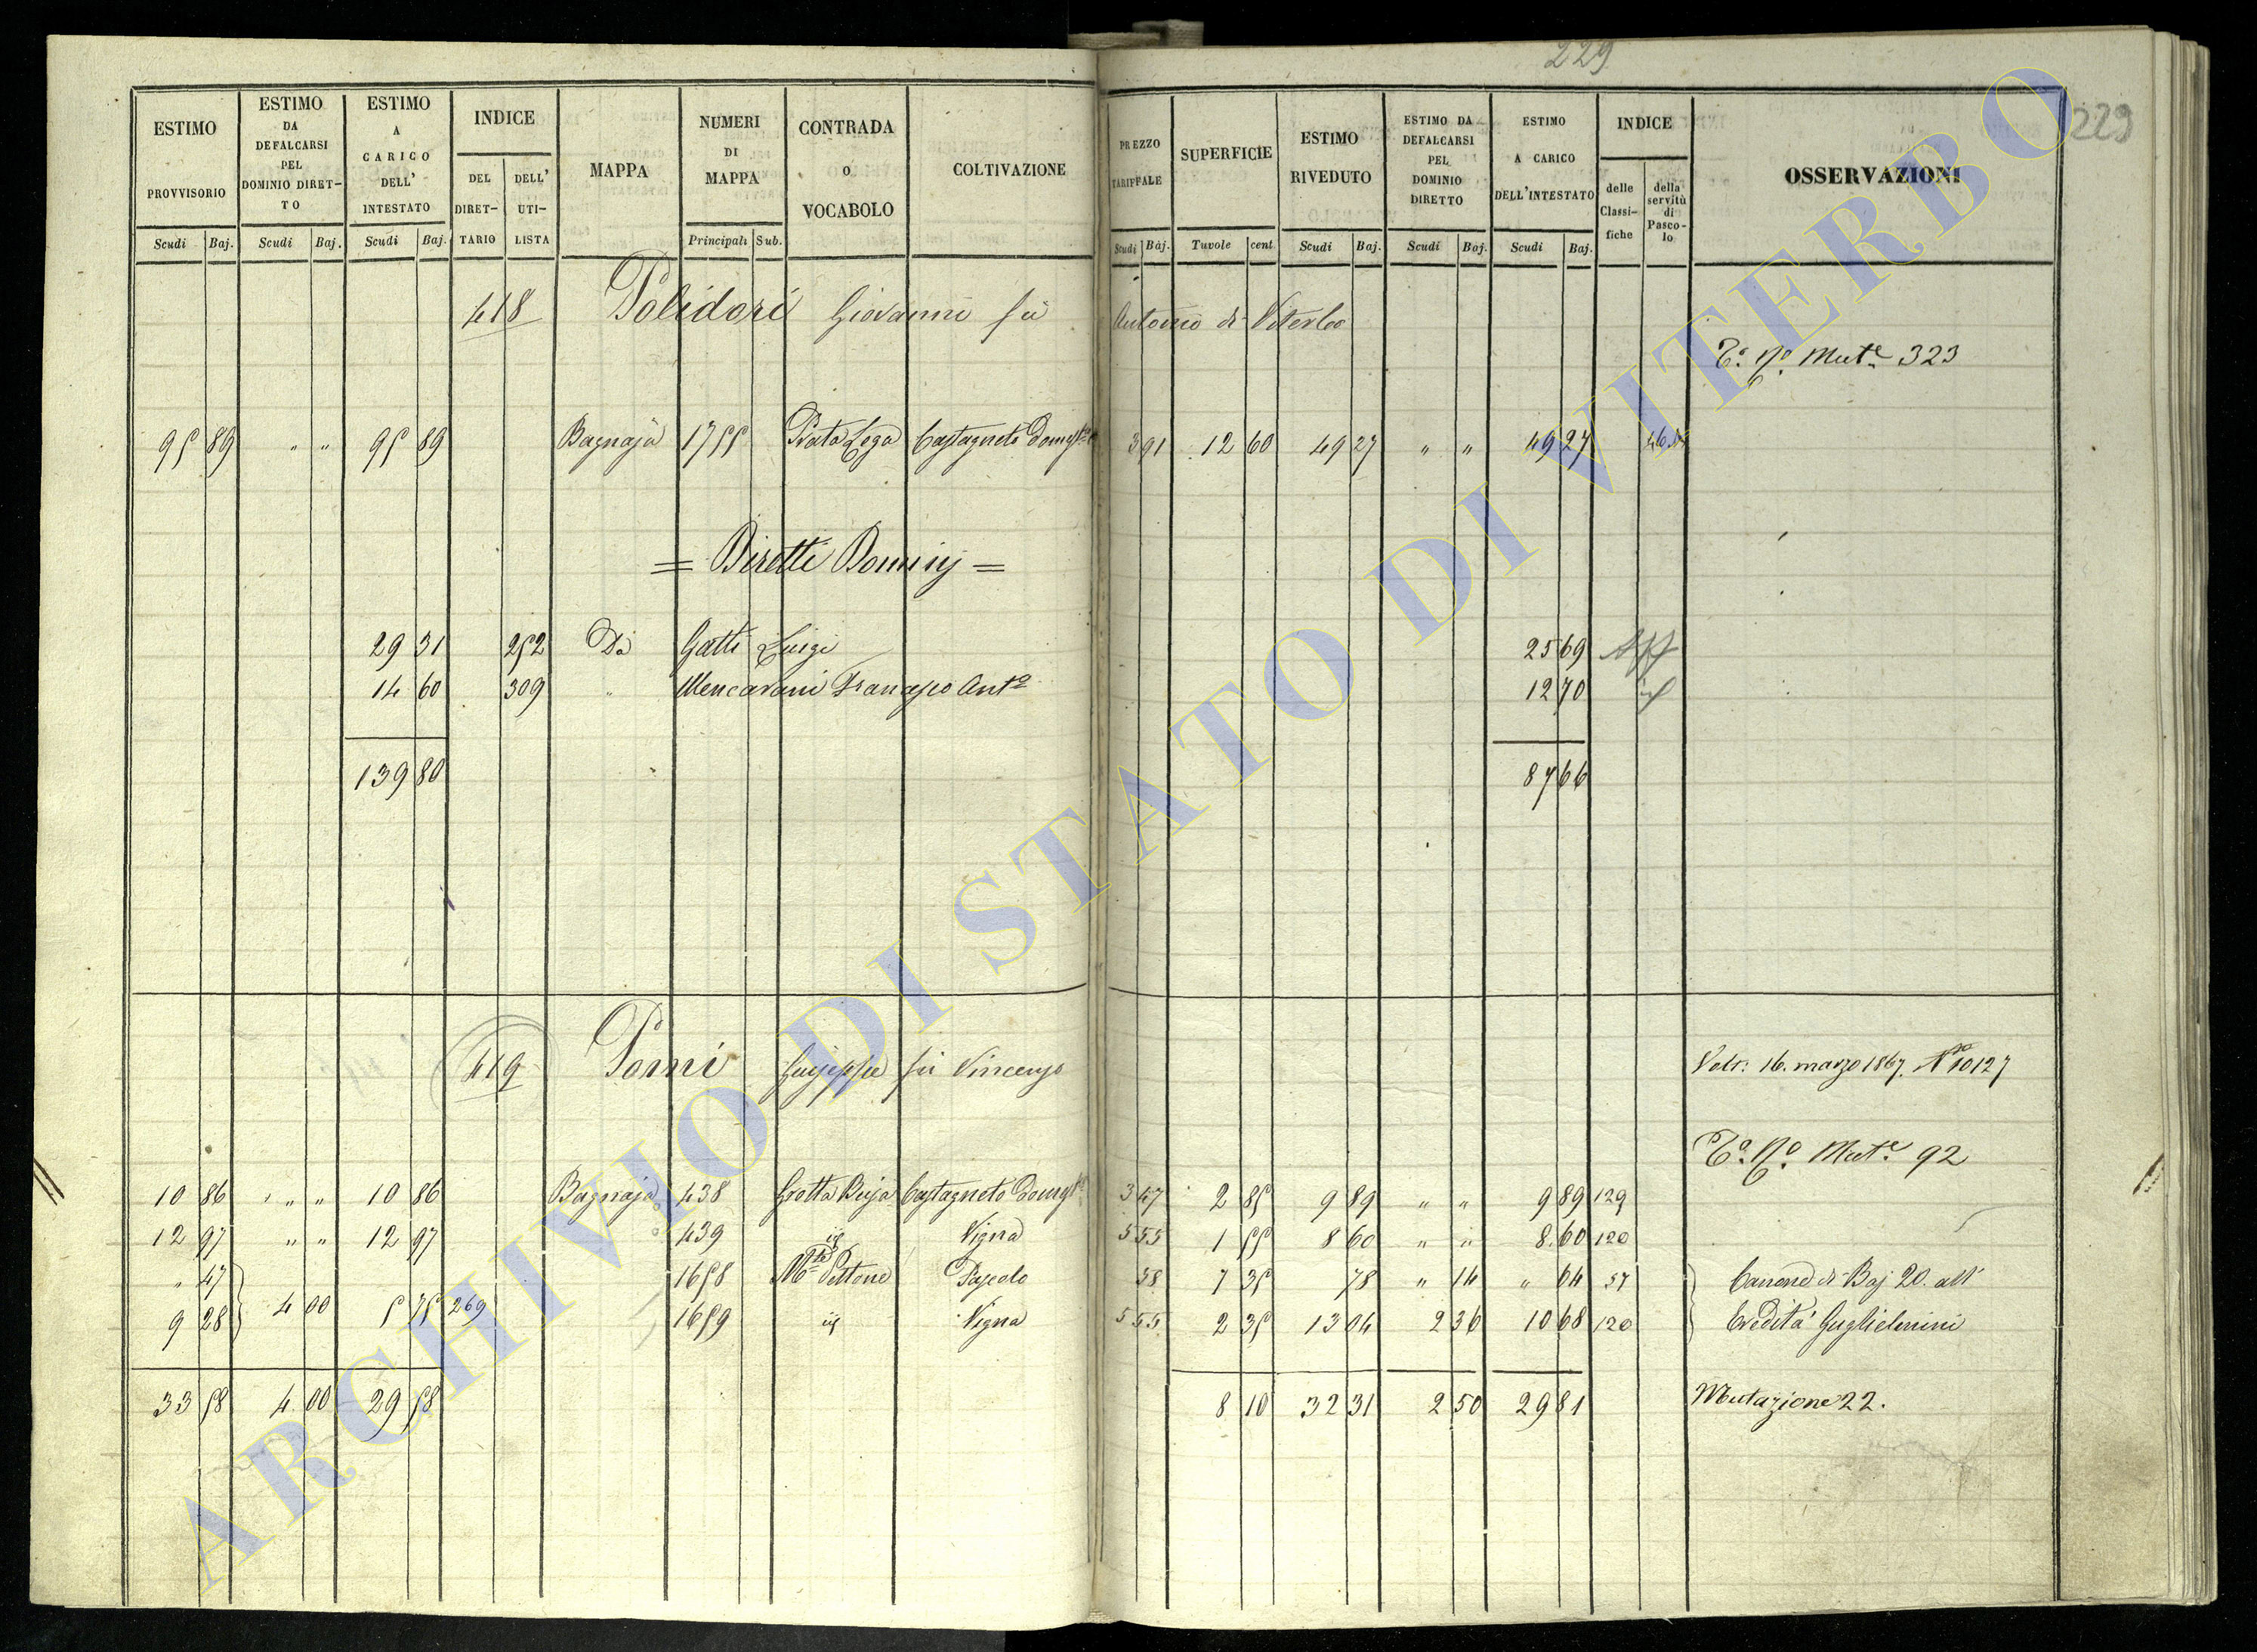 229
229
ESTIMO PROVVISORIO Scudi Baj.
ESTIMO DA DEFALCARSI PEL DOMINIO DIRET-TO Scudi Baj.
ESTIMO A CARICO DELL' INTESTATO Scudi Baj.
INDICE DEL DIRET-TARIO DELL' UTI-LISTA
MAPPA
NUMERI DI MAPPA Principali Sub.
CONTRADA o VOCABOLO
COLTIVAZIONE
PREZZO TARIFFALE Scudi Baj.
SUPERFICIE Tavole cent
ESTIMO RIVEDUTO Scudi Baj.
ESTIMO DA DEFALCARSI PEL DOMINIO DIRETTO Scudi Baj.
ESTIMO A CARICO DELL'INTESTATO Scudi Baj.
INDICE delle Classi-fiche della servitù di Pasco-lo
OSSERVAZIONI
418 Polidori Giovanni fu Antonio di Viterbo
Tº. Nº. Mutº 323
95 89 " " 95 89 Bagnaja 1755 Prato Castagneto Domest. 3 91 12 60 49 27 " " 49 27
= Diretti Dominj =
29 31 252 Da Gatti Luigi 25 69
14 60 309 " Mencarani Francesco Antº 12 70
139 80 87 66
419 Pomi Giuseppe fu Vincenzo Volt: 16. marzo 1867. Nº 10127
Tº. Nº. Mutº 92
10 86 " " 10 86 Bagnaja 438 Grotta Castagneto Domest. 3 47 2 85 9 89 " " 9 89 129
12 97 " " 12 97 439 id Vigna 5 55 1 55 8 60 " " 8.60 120
" 47 1658 Pascolo 58 1 35 78 " 14 " 64 57 Canone di Baj 20. all'
9 28 4 00 5 75 269 1659 id Vigna 5 55 2 35 13 04 2 36 10 68 120 Eredità Guglielmini
33 58 4 00 29 58 8 10 32 31 2 50 29 81 Mutazione 22.
ARCHIVIO DI STATO DI VITERBO